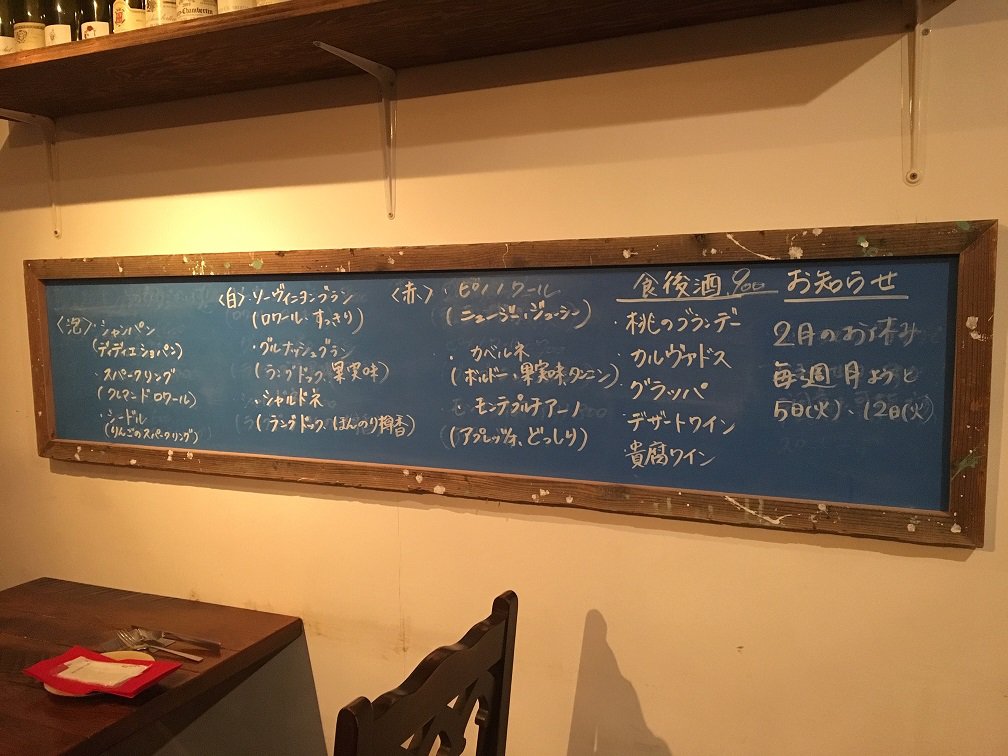 Chambertin
〈泡〉・シャンパン
(ディディエ ショパン)
・スパークリング
(クレマンド ロワール)
・シードル
(りんごのスパークリング)
〈白〉・ソーヴィニヨンブラン
(ロワール、すっきり)
・グルナッシュブラン
(ラングドック、果実味)
・シャルドネ
(ラングドック、ほんのり樽香)
〈赤〉・ピノノワール
(ニュージー、ジューシー)
・カベルネ
(ボルドー、果実味、タンニン)
・モンテプルチアーノ
(アブレッツォ、どっしり)
食後酒 900
・桃のブランデー
・カルヴァドス
・グラッパ
・デザートワイン
・貴腐ワイン
お知らせ
2月のお休み
毎週月ようと
5日(火)、12日(火)